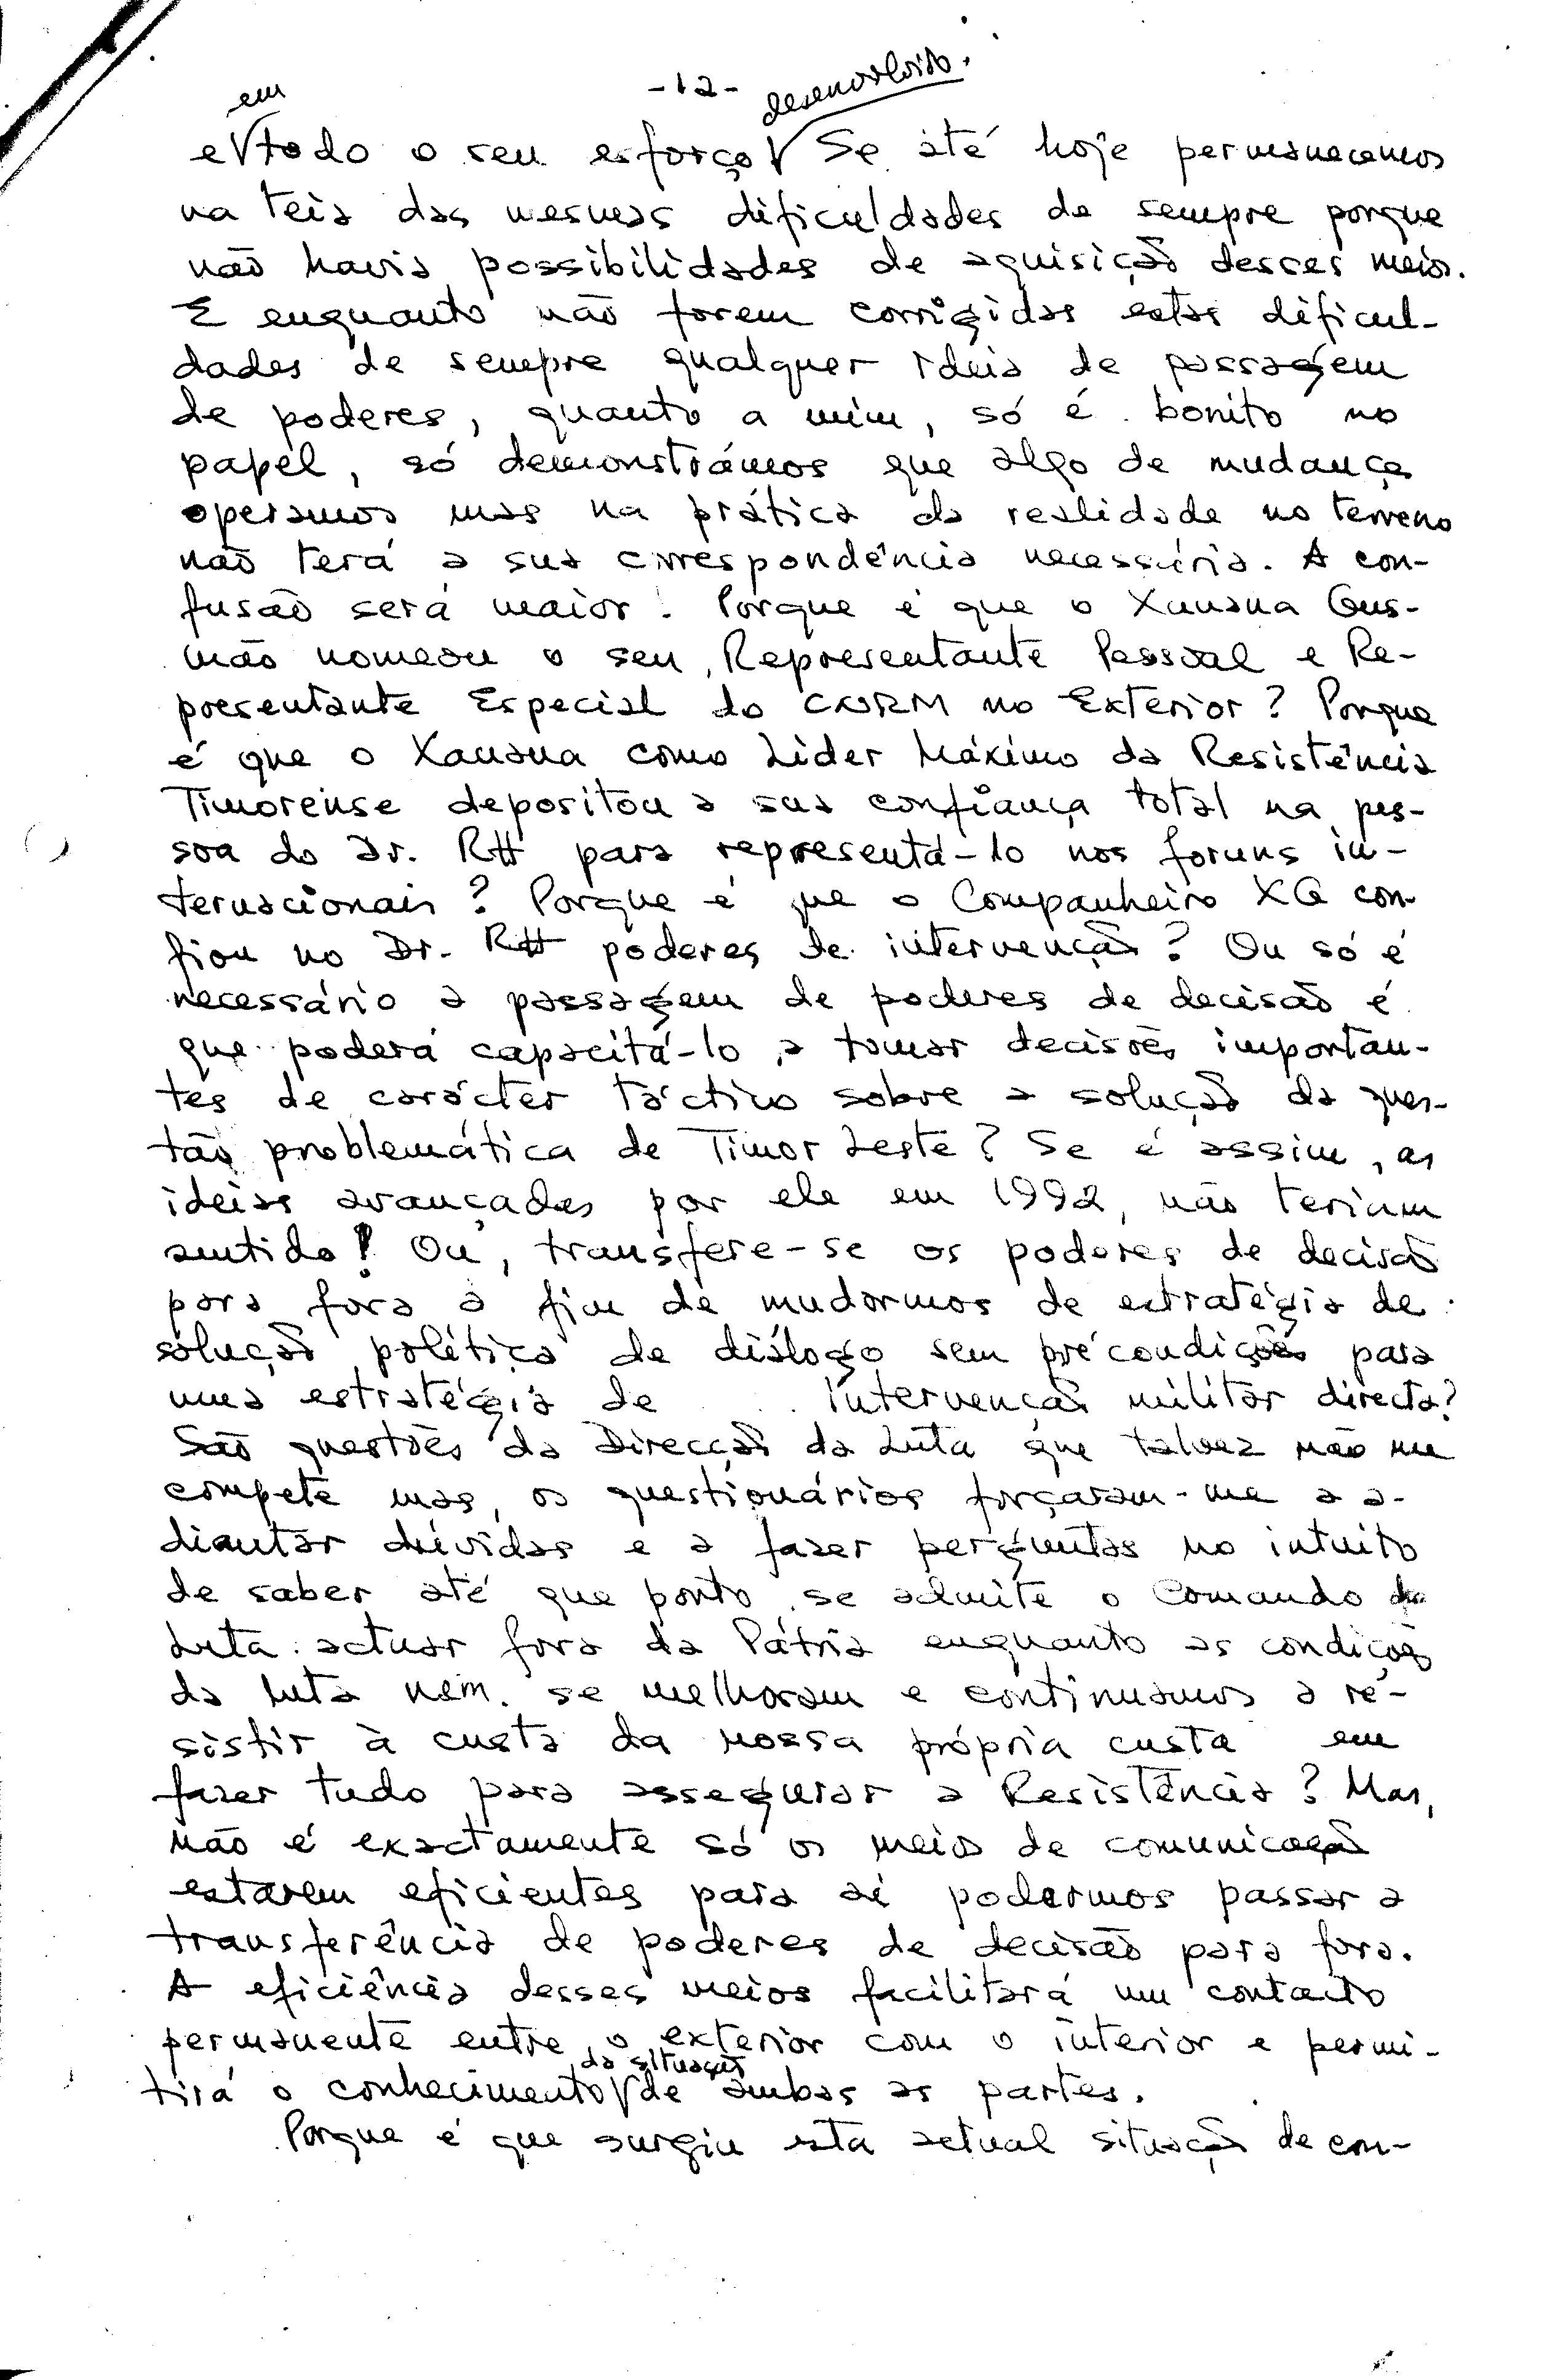 -12-
e em todo o seu esforço desenvolvido. Se até hoje permanecemos
na teia das mesmas dificuldades de sempre porque
não havia possibilidades de aquisição desses meios.
E enquanto não forem corrigidas estas dificul-
dades de sempre qualquer ideia de passagem
de poderes, quanto a mim, só é bonito no
papel, só demonstrámos que algo de mudança
operamos mas na prática da realidade no terreno
não terá a sua correspondência necessária. A con-
fusão será maior! Porque é que o Xanana Gus-
mão nomeou o seu Representante Pessoal e Re-
presentante Especial do CNRM no Exterior? Porque
é que o Xanana como Líder Máximo da Resistência
Timorense depositou a sua confiança total na pes-
soa do Dr. RH para representá-lo nos foruns in-
ternacionais? Porque é que o Companheiro XG con-
fiou no Dr. RH poderes de intervenção? Ou só é
necessário a passagem de poderes de decisão é
que poderá capacitá-lo a tomar decisões importan-
tes de carácter táctico sobre a solução da ques-
tão problemática de Timor Leste? Se é assim, as
ideias avançadas por ele em 1992, não teriam
sentido! Ou, transfere-se os poderes de decisão
para fora a fim de mudarmos de estratégia de
solução política de diálogo sem précondições para
uma estratégia de intervenção militar directa?
São questões da Direcção da Luta que talvez não me
compete mas, os questionários forçaram-me a a-
diantar dúvidas e a fazer perguntas no intuito
de saber até que ponto se admite o Comando da
Luta actuar fora da Pátria enquanto as condições
da luta nem se melhoram e continuamos a re-
sistir à custa da nossa própria custa em
fazer tudo para assegurar a Resistência? Mas,
não é exactamente só os meios de comunicação
estarem eficientes para aí podermos passar a
transferência de poderes de decisão para fora.
A eficiência desses meios facilitará um contacto
permanente entre o exterior com o interior e permi-
tirá o conhecimento da situação de ambas as partes.
Porque é que surgiu esta actual situação de con-